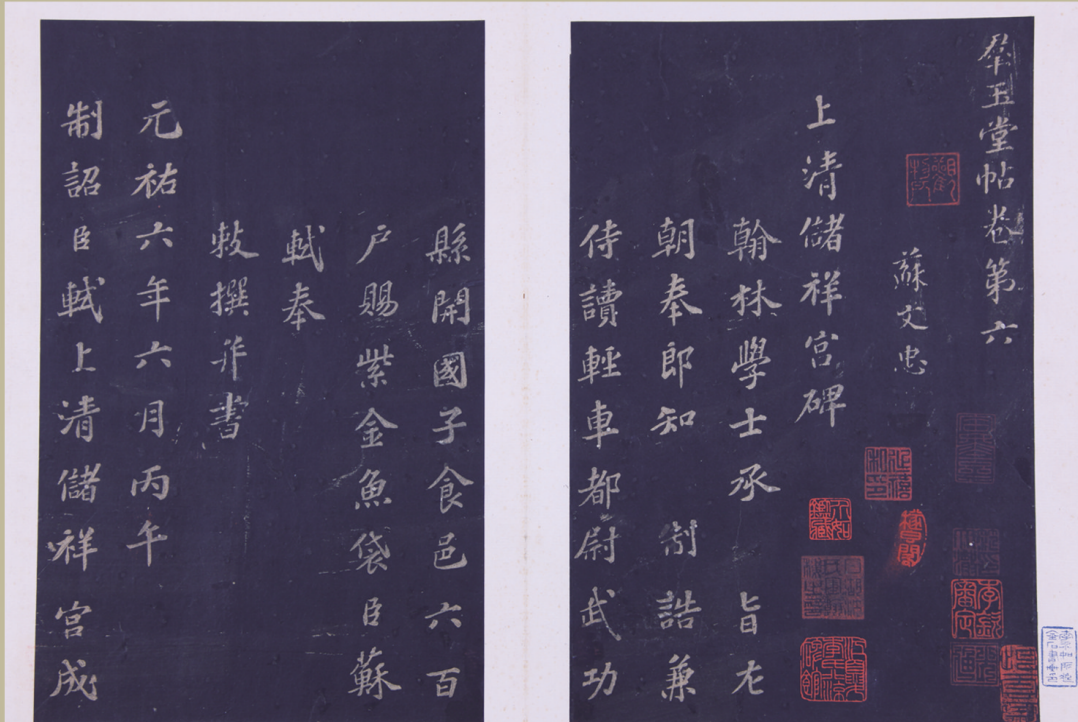 羣玉堂帖卷第六
蘇文忠
上清儲祥宮碑
翰林學士承旨左
朝奉郎知制誥兼
侍讀輕車都尉武功
縣開國子食邑六百
戶賜紫金魚袋臣蘇
軾奉
敕撰并書
元祐六年六月丙午
制詔臣軾上清儲祥宮成